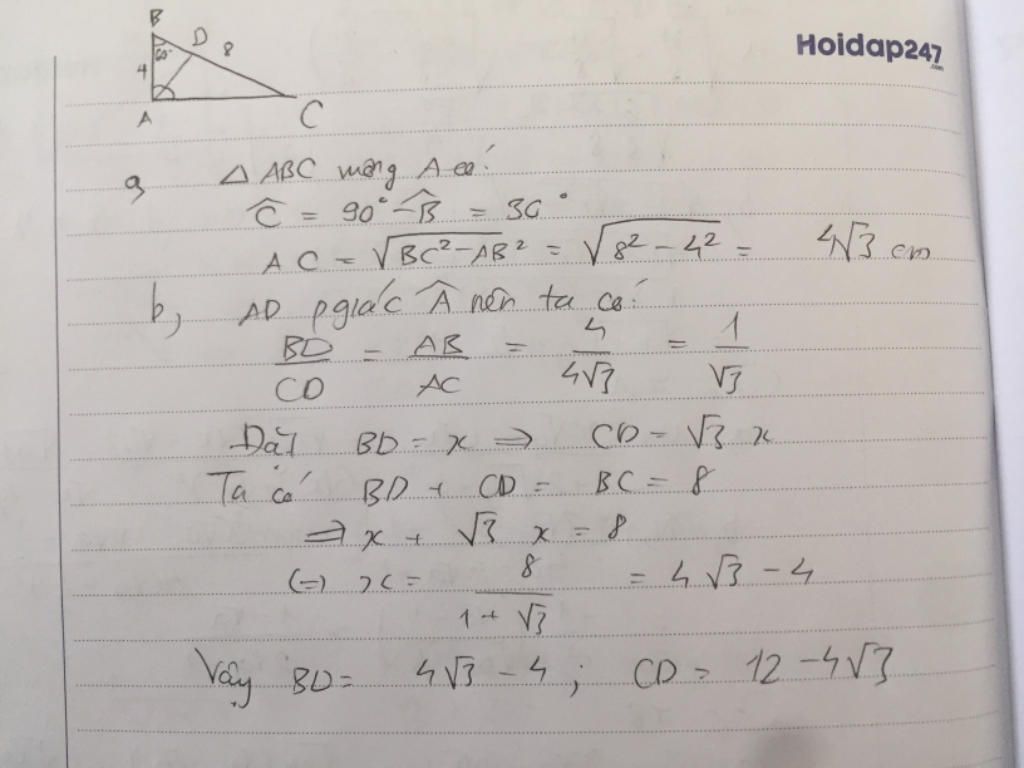 B
D
8
60°
4
A
C
Hoidap247
.com
a, △ ABC vuông A có:
Ĉ = 90° - B̂ = 30°
AC = √(BC² - AB²) = √(8² - 4²) = 4√3 cm
b, AD pgiác Â nên ta có:
BD/CD = AB/AC = 4/4√3 = 1/√3
Đặt BD = x ⇒ CD = √3 x
Ta có BD + CD = BC = 8
⇒ x + √3 x = 8
(=) x = 8/(1 + √3) = 4√3 - 4
Vậy BD = 4√3 - 4 ; CD = 12 - 4√3